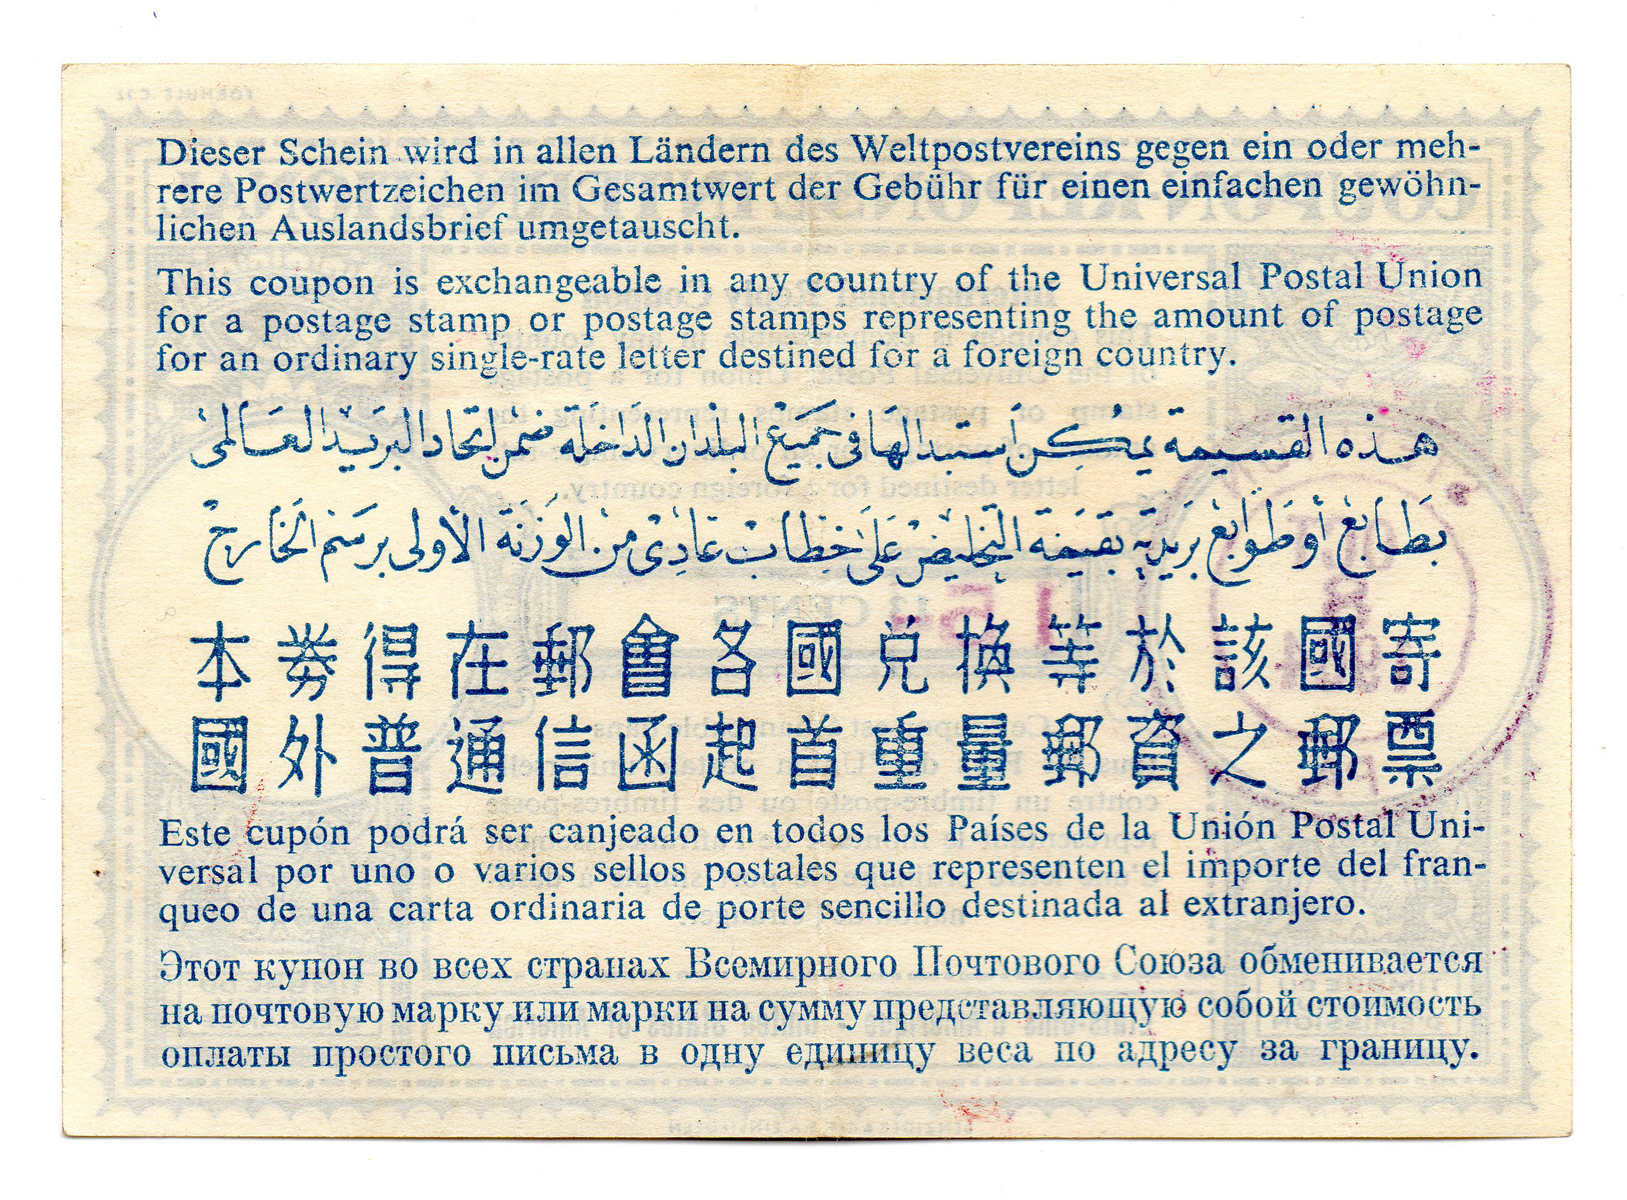 Dieser Schein wird in allen Ländern des Weltpostvereins gegen ein oder meh-
rere Postwertzeichen im Gesamtwert der Gebühr für einen einfachen gewöhn-
lichen Auslandsbrief umgetauscht.
This coupon is exchangeable in any country of the Universal Postal Union
for a postage stamp or postage stamps representing the amount of postage
for an ordinary single-rate letter destined for a foreign country.
هذه القسيمة يمكن استبدالها في جميع البلدان الداخلة ضمن اتحاد البريد العالمى
بطابع أو طوابع بريدية بقيمة التخليص على خطاب عادى من الوزنة الأولى برسم الخارج
本券得在郵會各國兌換等於該國寄
國外普通信函起首重量郵資之郵票
Este cupón podrá ser canjeado en todos los Países de la Unión Postal Uni-
versal por uno o varios sellos postales que representen el importe del fran-
queo de una carta ordinaria de porte sencillo destinada al extranjero.
Этот купон во всех странах Всемирного Почтового Союза обменивается
на почтовую марку или марки на сумму представляющую собой стоимость
оплаты простого письма в одну единицу веса по адресу за границу.